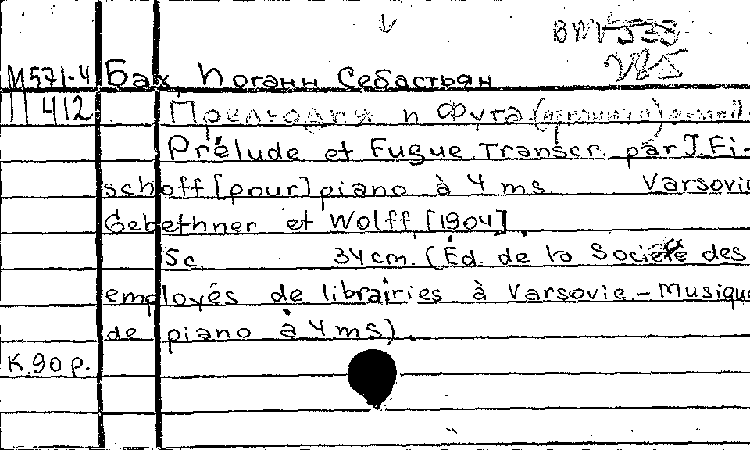 BWV 533
М571-4 Бах, Иоганн Себастьян
П 412 Прелюдия и фуга
Prélude et Fugue. Transcr. par J. Fi-
schoff [pour] piano à 4 ms Varsovie
Gebethner et Wolff [1904].
5c 34 cm. (Éd. de la Société des
employés de librairies à Varsovie. – Musique
de piano à 4 ms).
К. 90 р.